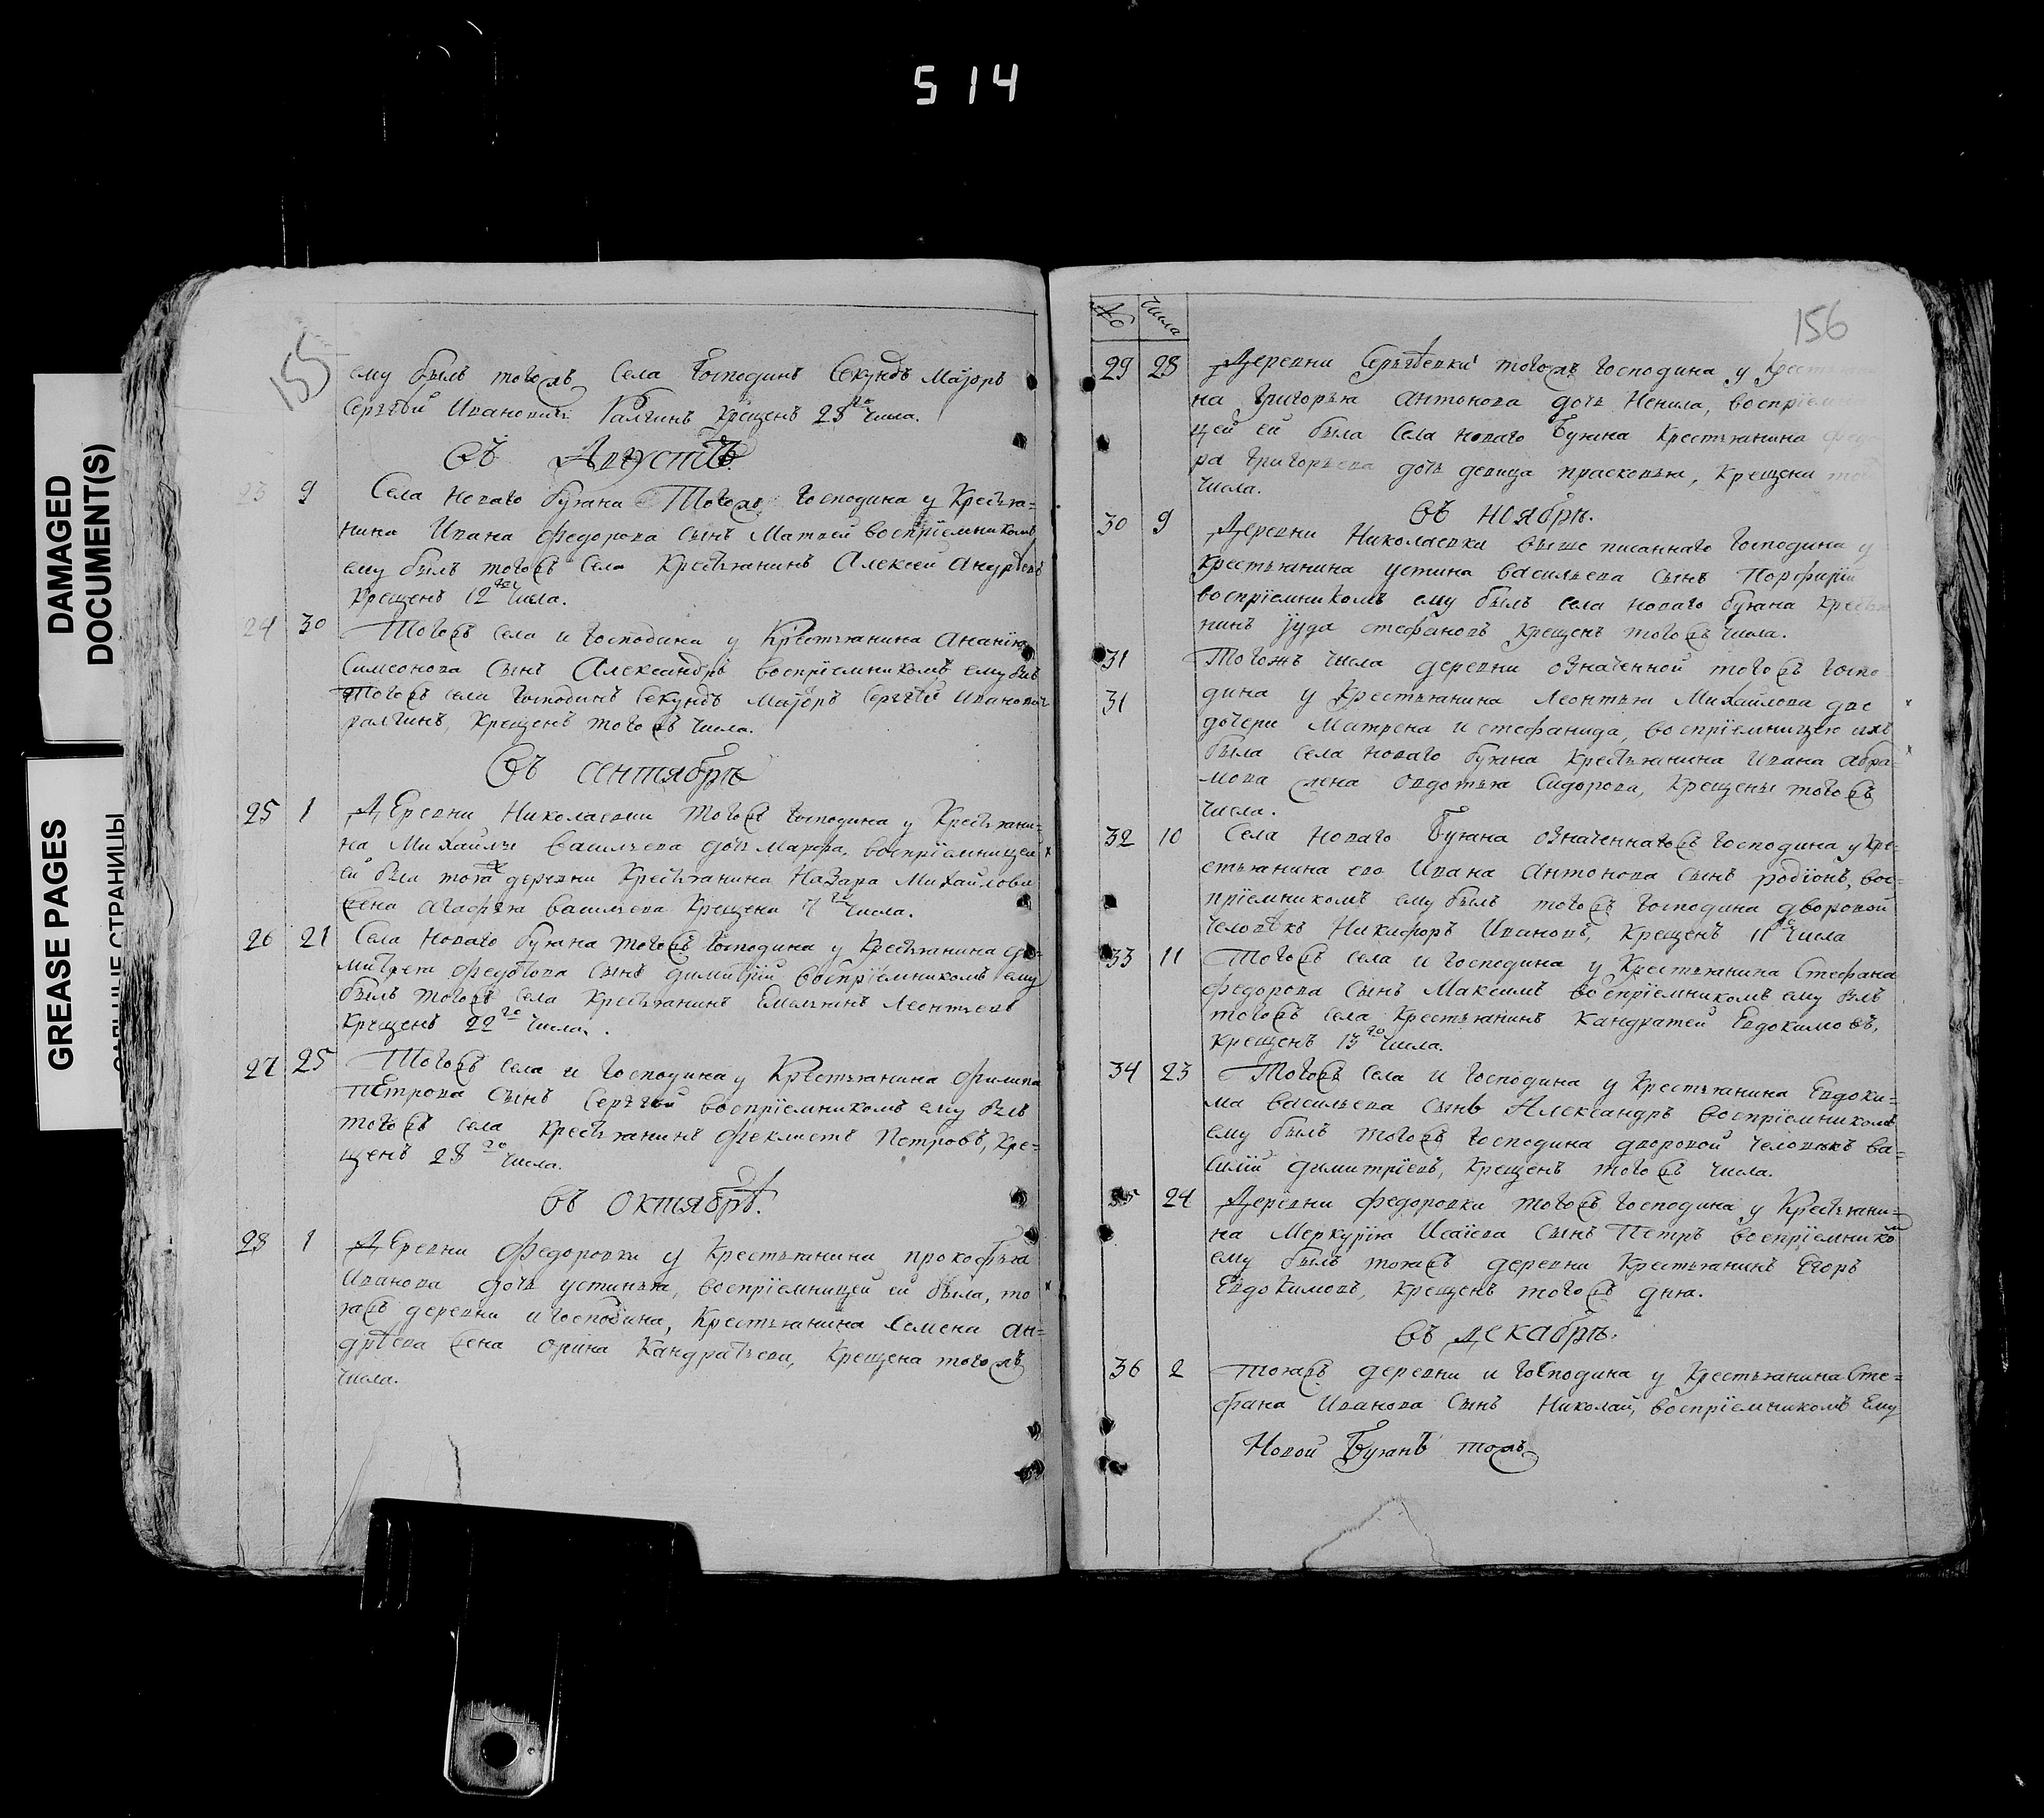 514
DAMAGED
DOCUMENT(S)
GREASE PAGES
СТРАНИЦЫ
155
ему былъ тогожъ села Господинъ Секундъ Маіоръ
Сергѣй Ивановичь крещенъ 28го числа.
Въ Августѣ
23 9 Села Новаго Буяна тогожъ Господина у Крестья=
нина Ивана Федорова сынъ Матвей воспріемникомъ
ему былъ тогожъ села Крестьянинъ Алексей Андрѣевъ
крещенъ 12го числа.
24 30 Тогожъ села и Господина у Крестьянина Ананія
Симеонова сынъ Александръ воспріемникомъ ему былъ
тогожъ села Господинъ Секундъ Маіоръ Сергѣй Ивановичь
крещенъ тогожъ числа.
Въ сентябрѣ
25 1 Деревни Николаевки тогожъ Господина у Крестьяни=
на Михайлы Васильева дочь Марфа, воспріемницей
ей была тояжъ деревни Крестьянина Назара Михайлова
жена Агафья Васильева крещена числа.
26 21 Села Новаго Буяна тогожъ Господина у Крестьянина ди=
митрея Федотова сынъ димитрій воспріемникомъ ему
былъ тогожъ села Крестьянинъ Емельянъ Леонтьевъ
крещенъ 22го числа.
27 25 Тогожъ села и Господина у Крестьянина Филипа
Петрова сынъ Сергѣй воспріемникомъ ему былъ
тогожъ села крестьянинъ Феклистъ Петровъ, кре=
щенъ 28го числа.
Въ октябрѣ.
28 1 Деревни Федоровки у Крестьянина прокофья
Иванова дочь устинья, воспріемницей ей была, то
яжъ деревни и Господина, Крестьянина Семена Ан=
дрѣева жена Орина Кандратьева, крещена тогожъ
числа.
156
№ числа
29 28 Деревни Сергѣевки тогожъ Господина у
на Григорья Антонова дочь Ненила,
цей ей была села Новаго Буяна Крестьянина
ра Григорьева дочь девица прасковья, Крещена
числа.
Въ ноябрѣ.
30 9 Деревни Николаевки выше писаннаго Господина у
крестьянина устина Васильева сынъ Порфирій
воспріемникомъ ему былъ села Новаго Буяна
нинъ Іуда стефановъ крещенъ тогожъ числа.
31 Тогожъ числа деревни означенной тогожъ Госпо
31 дина у Крестьянина Леонтья Михайлова две
дочери Матрена и стефанида, воспріемницею ихъ
была села новаго Буяна Крестьянина Ивана Абра=
мова жена Овдотья Сидорова, Крещены тогожъ
числа.
32 10 Села Новаго Буяна означеннагожъ Господина у Кре=
стьянина ево Ивана Антонова сынъ родіонъ, вос=
пріемникомъ ему былъ тогожъ Господина дворовой
человѣкъ Никифоръ Ивановъ, Крещенъ 11го числа
33 11 Тогожъ села и Господина у Крестьянина Стефана
Федорова сынъ Максимъ воспріемникомъ ему былъ
тогожъ села Крестьянинъ Кандратей Евдокимовъ,
крещенъ 13го числа.
34 23 Тогожъ села и Господина у Крестьянина Евдоки=
ма Васильева сынъ Александръ воспріемникомъ
ему былъ тогожъ Господина дворовой человѣкъ Ва=
силій димитріевъ, Крещенъ тогожъ числа.
35 24 Деревни Федоровки тогожъ Господина у Крестьяни=
на Меркурія Исаіева сынъ Петръ воспріемникомъ
ему былъ тояжъ деревни Крестьянинъ Егоръ
Евдокимовъ, крещенъ тогожъ дня.
Въ декабрѣ.
36 2 Тояжъ деревни и Господина у Крестьянина Сте=
фана Иванова сынъ Николай, воспріемникомъ ему
Новой Буянъ тожъ